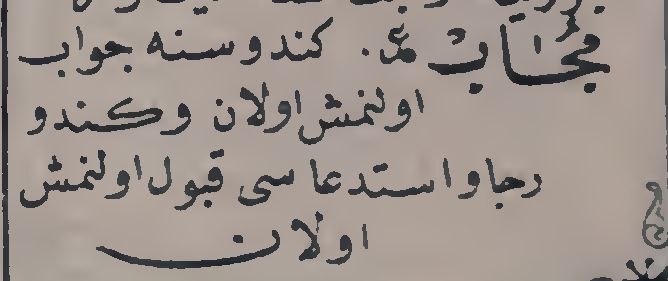 مُجَاب عـ. كندوسنه جواب
اولنمش اولان وكندو
رجا واستدعاسى قبول اولنمش
اولان